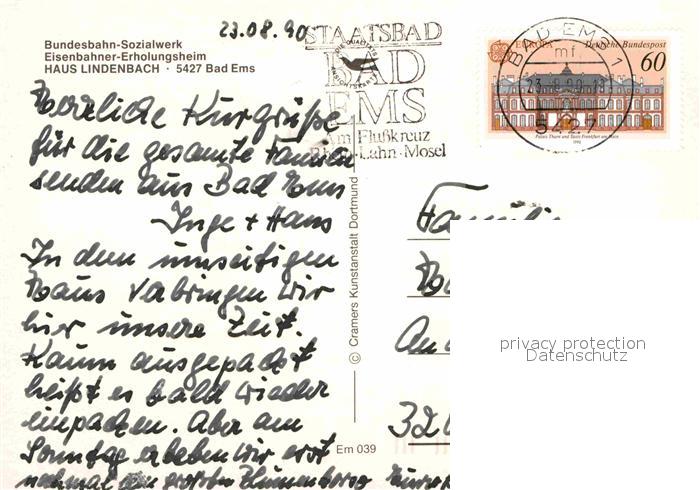 23.08.90
Bundesbahn-Sozialwerk
Eisenbahner-Erholungsheim
HAUS LINDENBACH · 5427 Bad Ems
STAATSBAD
BAD
EMS
im Flußkreuz
Rhein-Lahn-Mosel
BAD EMS 1
mf
5427
EUROPA Deutsche Bundespost
60
Palais Thurn und Taxis Frankfurt am Main
1990
Herzliche Kurgrüße
für die gesamte Familie
senden aus Bad Ems
Inge + Hans
In dem umseitigen
Haus verbringen wir
hier unsere Zeit.
Kaum ausgepackt
heißt es bald wieder
einpacken. Aber am
Sonntag erleben wir erst
nochmal den großen Blumenkorso
© Cramers Kunstanstalt Dortmund
Em 039
Familie
An
32
privacy protection
Datenschutz